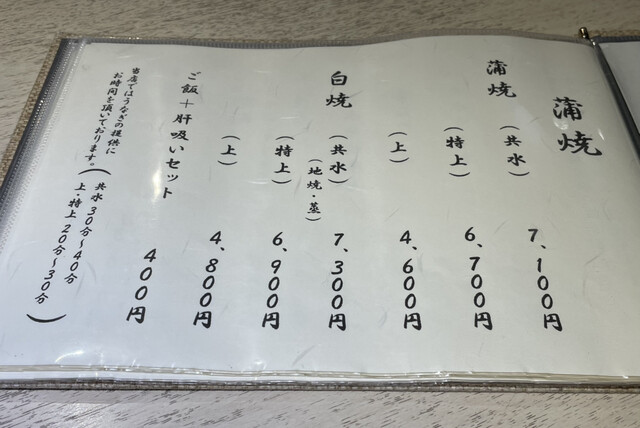 蒲焼
蒲焼 (共水) 7、100円
(特上) 6、700円
(上) 4、600円
白焼 (共水) 7、300円
(地焼・蒸)
(特上) 6、900円
(上) 4、800円
ご飯+肝吸いセット 400円
当店ではうなぎの提供に
お時間を頂いております。
(共水 30分〜40分
上・特上 20分〜30分)